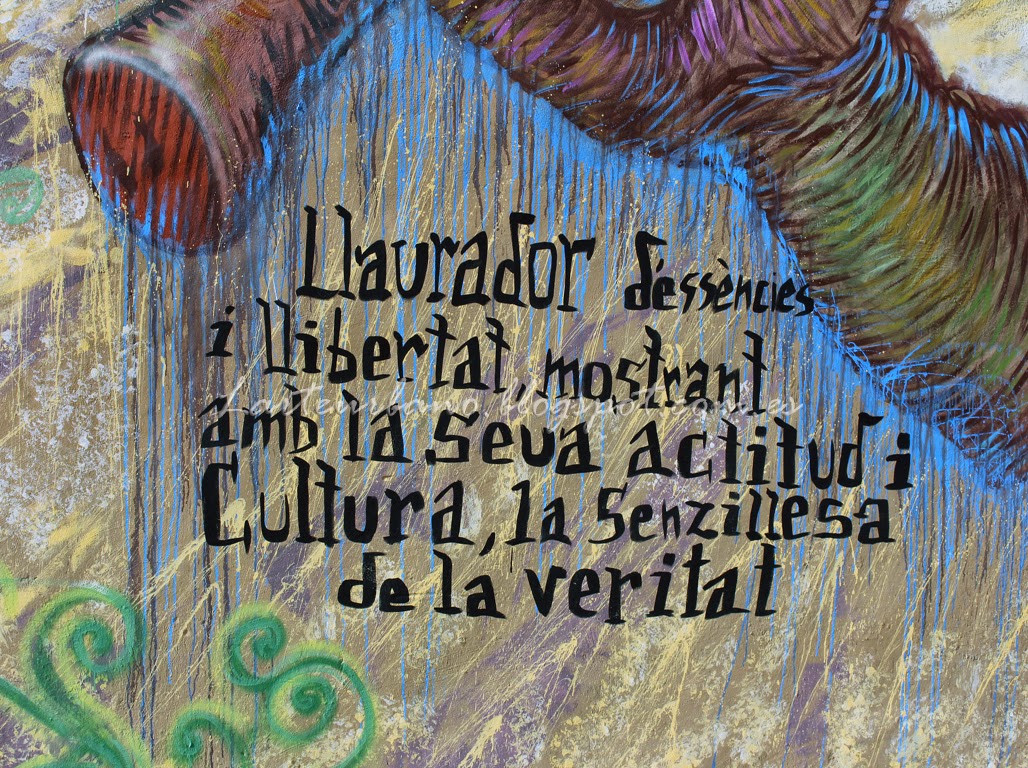 Llaurador d'essències
i llibertat, mostrant
amb la seva actitud i
Cultura, la senzillesa
de la veritat